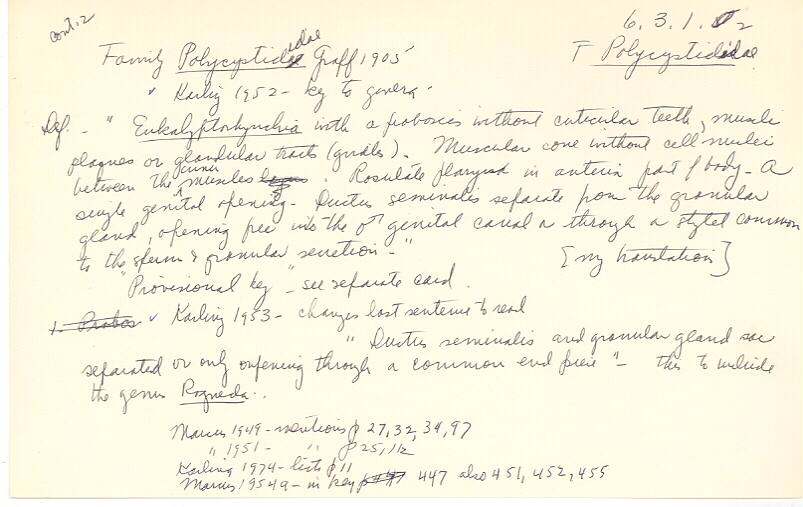 cont. 2
6.3.1.2
Family Polycystididae Graff 1905
F Polycystididae
✓ Karling 1952 - key to genera.
Def. - "Eukalyptorhynchia with a proboscis without cuticular teeth, muscle
plaques or glandular tracts (girdles). Muscular cone without cell nuclei
between the inner muscles. Rosulate pharynx in anterior part of body - A
single genital opening - Ductus seminalis separate from the granular
gland, opening free into the ♂ genital canal or through a stylet common
to the sperm & granular secretion -"
[my translation]
"Provisional key" - see separate card.
1. Probos ✓ Karling 1953 - changes last sentence to read
"Ductus seminalis and granular gland sac
separated or only opening through a common end piece" - this to include
the genus Rogneda.
Marcus 1949 - mentions p 27, 32, 34, 97
" 1951 - " p 25, 112
Karling 1974 - lists p 11
Marcus 1954a - in key p 447 also 451, 452, 455